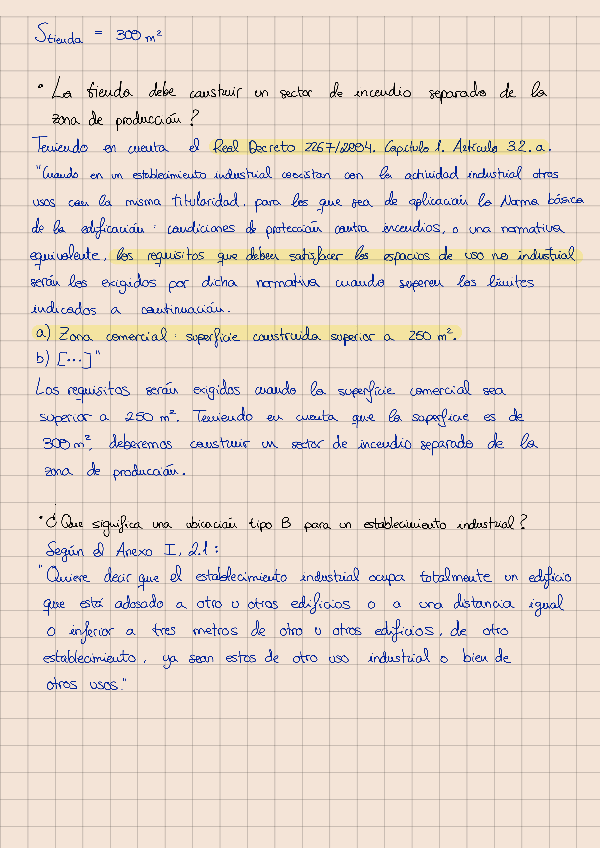 Stienda = 300 m²
• La tienda debe construir un sector de incendio separado de la
zona de producción?
Teniendo en cuenta el Real Decreto 2267/2004. Capítulo 1. Artículo 3.2.a.
"Cuando en un establecimiento industrial coexistan con la actividad industrial otros
usos con la misma titularidad, para los que sea de aplicación la Norma básica
de la edificación: condiciones de protección contra incendios, o una normativa
equivalente, los requisitos que deben satisfacer los espacios de uso no industrial
serán los exigidos por dicha normativa cuando superen los límites
indicados a continuación.
a) Zona comercial: superficie construida superior a 250 m².
b) [...]"
Los requisitos serán exigidos cuando la superficie comercial sea
superior a 250 m². Teniendo en cuenta que la superficie es de
300 m², deberemos construir un sector de incendio separado de la
zona de producción.
• ¿Que significa una ubicación tipo B para un establecimiento industrial?
Según el Anexo I, 2.1:
"Quiere decir que el establecimiento industrial ocupa totalmente un edificio
que está adosado a otro u otros edificios o a una distancia igual
o inferior a tres metros de otro u otros edificios, de otro
establecimiento, ya sean estos de otro uso industrial o bien de
otros usos."